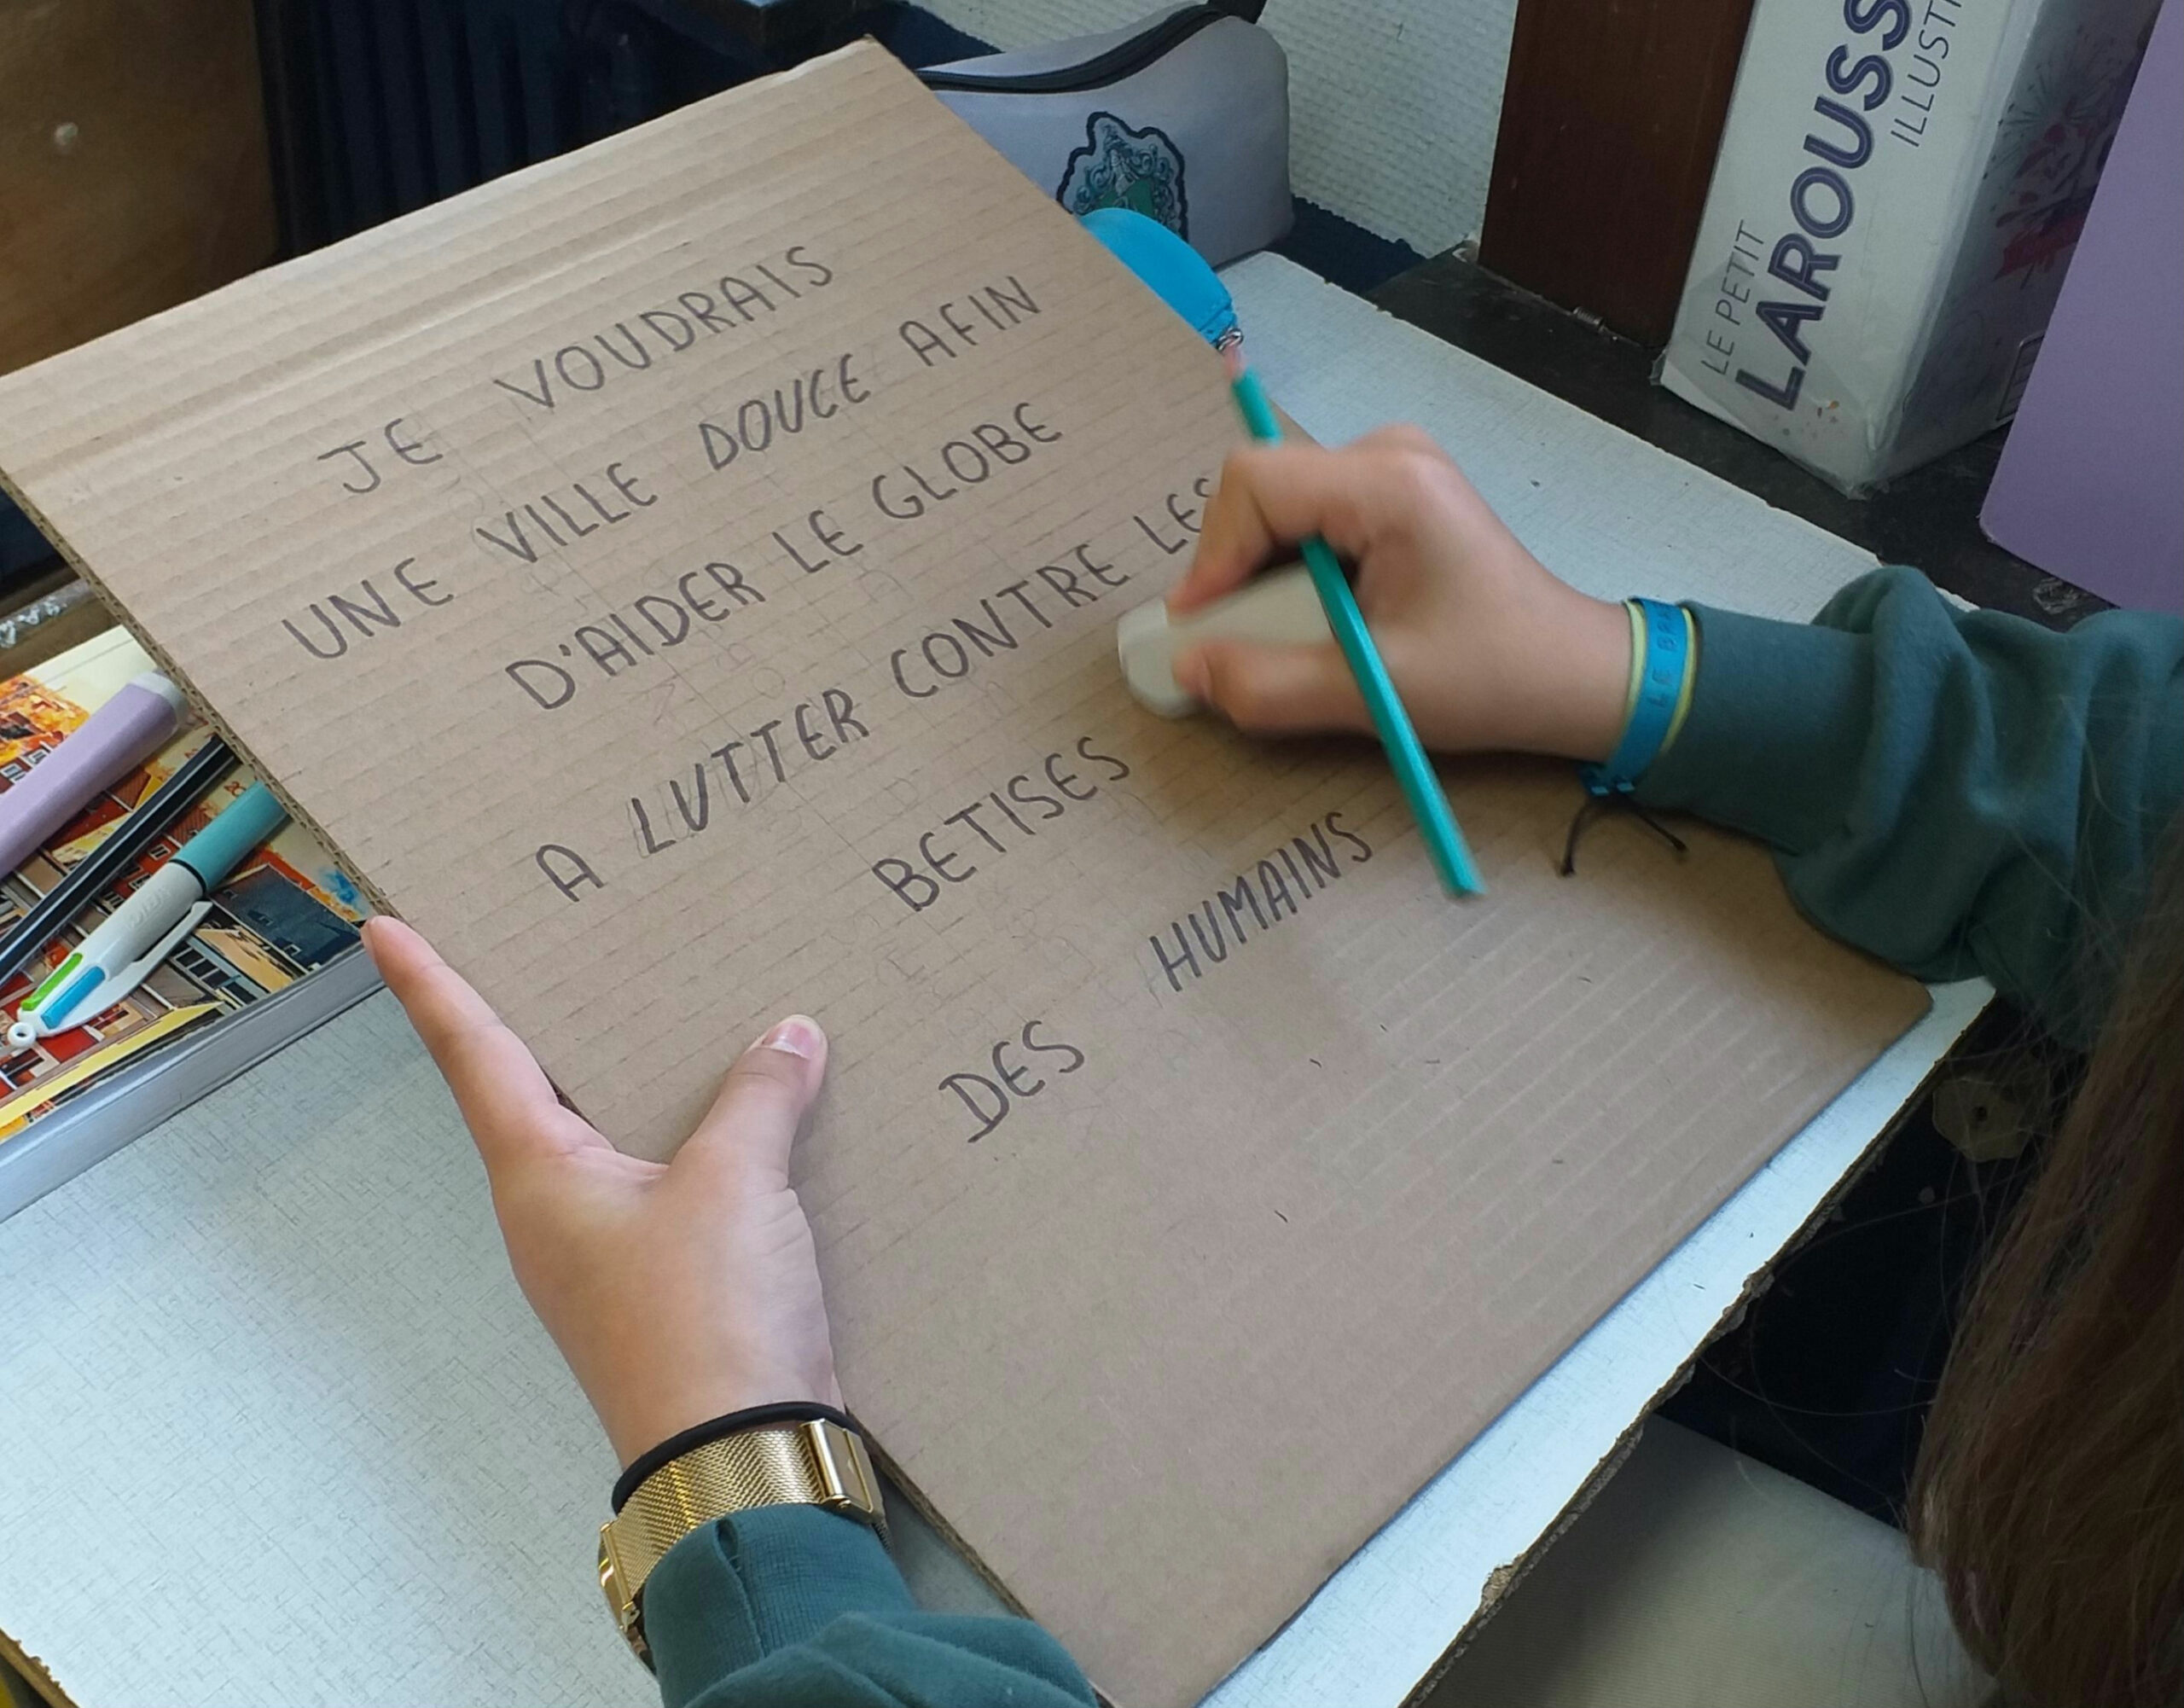 JE VOUDRAIS
UNE VILLE DOUCE AFIN
D'AIDER LE GLOBE
A LUTTER CONTRE LES
BETISES
DES HUMAINS
LE PETIT
LAROUSS
ILLUST